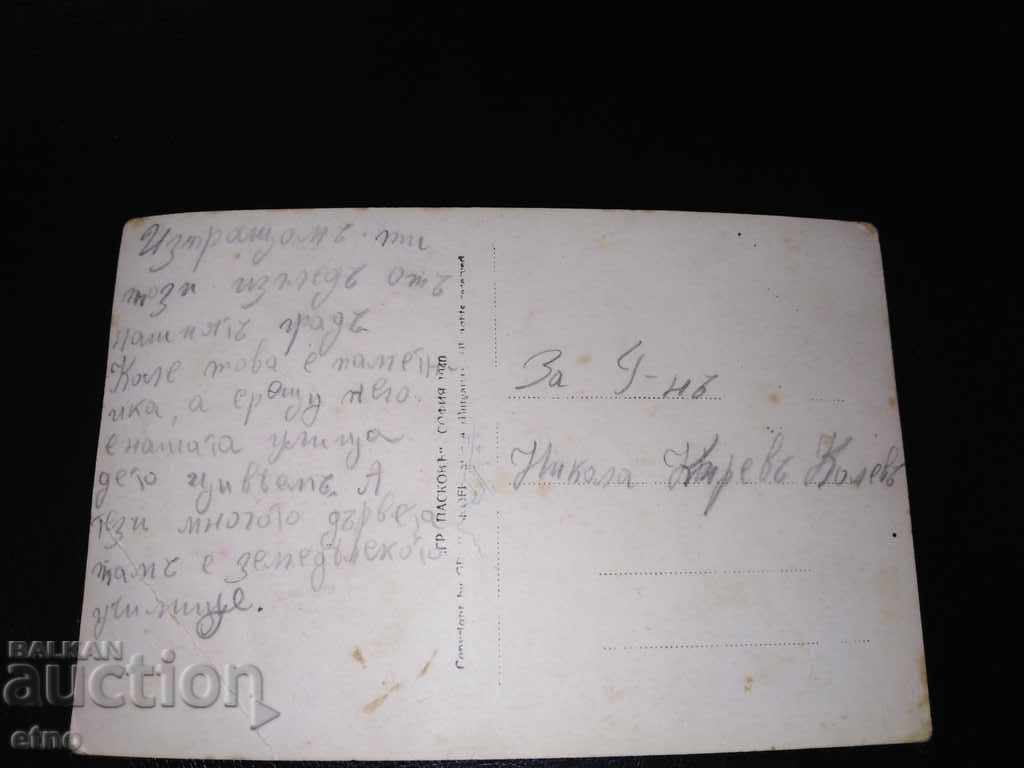 Изтращамъ ти
този изгледъ отъ
нашиятъ градъ
Коле това е паметн-
ика, а срещу него
е нашата улица
дето живѣемъ. А
тези многото дървета
тамъ е земедѣлското
училище.
ГР. ПАСКОВЪ СОФИЯ
За Г-нъ
Никола Киревъ Колевъ
BALKAN
auction
etno